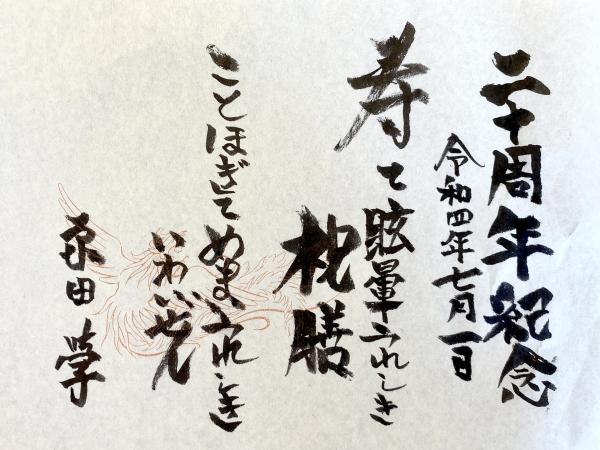 二十周年紀念
令和四年七月一日
寿て眩暈うれしき
祝膳
ことほぎてめまいうれしき
いわいぜん
原田 學